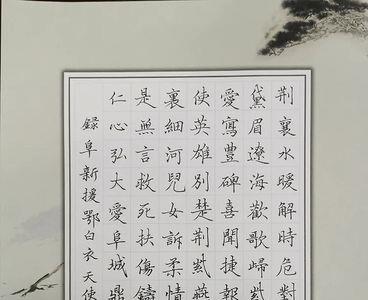 荆襄水暖解時危對
黛眉遼海歡歌歸
愛寫豐碑喜聞捷報
使英雄別楚荆紫燕
裏細河兒女訴柔情
是無言救死扶傷鑄
仁心弘大愛阜城鼎
錄阜新援鄂白衣天使